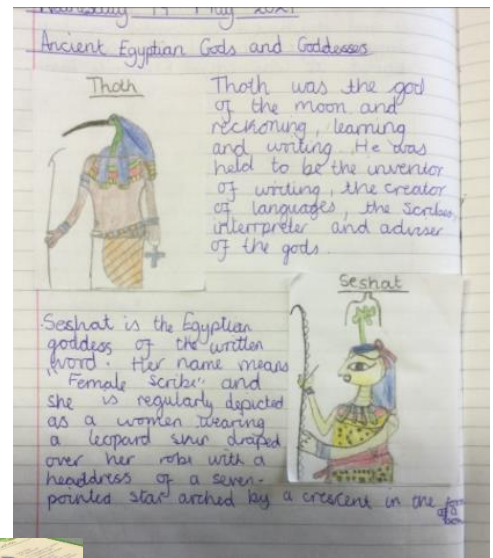 May
Ancient Egyptian Gods and Goddesses
Thoth
Thoth was the god
of the moon and
reckoning, learning
and writing. He was
held to be the inventor
of writing, the creator
of languages, the Scribes,
interrpreter and adviser
of the gods.
Seshat
Seshat is the Egyptian
goddess of the written
word. Her name means
"Female Scribe" and
she is regularly depicted
as a women wearing
a leopard draped
over her robe with a
headdress of a seven-
pointed star arched by a crescent in the